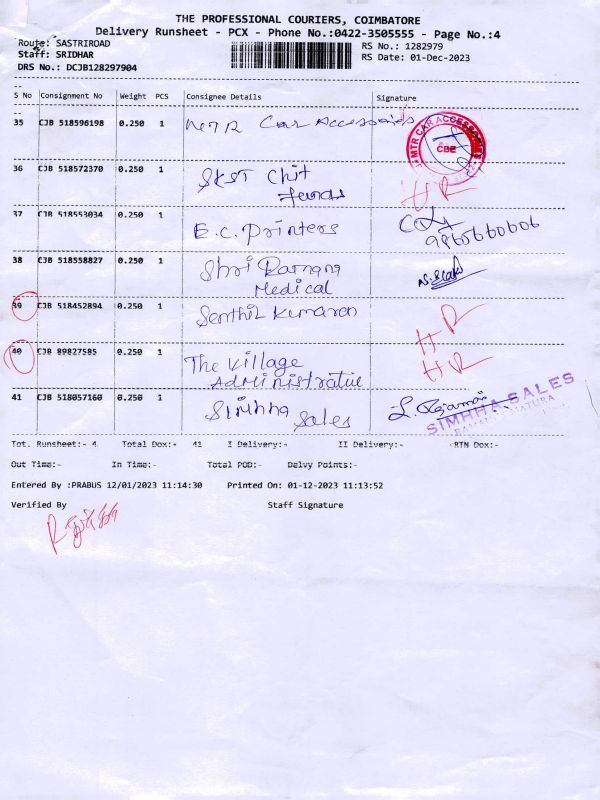 THE PROFESSIONAL COURIERS, COIMBATORE
Delivery Runsheet - PCX - Phone No.:0422-3505555 - Page No.:4
Route: SASTRIROAD RS No.: 1282979
Staff: SRIDHAR RS Date: 01-Dec-2023
DRS No.: DCJB128297904
S No Consignment No Weight PCS Consignee Details Signature
35 CJB 518596198 0.250 1 MTR Car Accessories
MTR CAR ACCESSORIES
CBE
36 CJB 518572370 0.250 1 SKST Chit
Funds HR
37 CJB 518553034 0.250 1 E.C. Printers
9865660606
38 CJB 518558827 0.250 1 Shri Ramana
Medical
39 CJB 518452894 0.250 1 Senthil Kumaran HR
40 CJB 89827585 0.250 1 The Village HR
Administrative
41 CJB 518057160 0.250 1 Simhha
Sales
SIMHHA SALES
Tot. Runsheet:- 4 Total Dox:- 41 I Delivery:- II Delivery:- RTN Dox:-
Out Time:- In Time:- Total POD:- Delvy Points:-
Entered By :PRABUS 12/01/2023 11:14:30 Printed On: 01-12-2023 11:13:52
Verified By Staff Signature